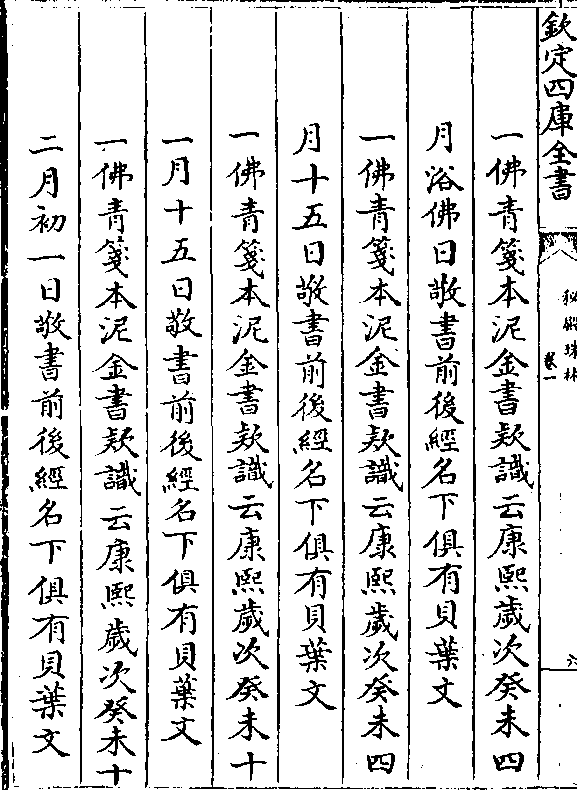 欽定四庫全書
秘殿珠林
卷一
六
一佛青箋本泥金書欵識云康熙歲次癸未四
月浴佛日敬書前後經名下俱有貝葉文
一佛青箋本泥金書欵識云康熙歲次癸未四
月十五日敬書前後經名下俱有貝葉文
一佛青箋本泥金書欵識云康熙歲次癸未十
一月十五日敬書前後經名下俱有貝葉文
一佛青箋本泥金書欵識云康熙歲次癸未十
二月初一日敬書前後經名下俱有貝葉文